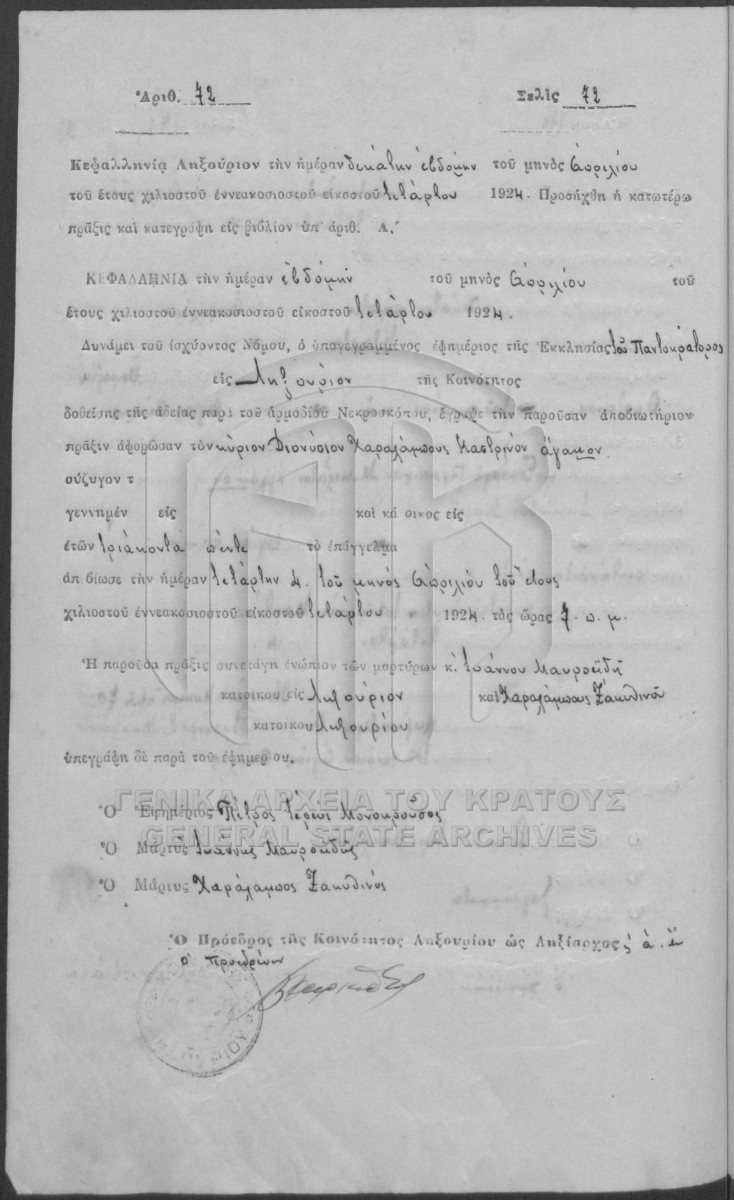 Ἀριθ. 72 Σελὶς 72
Κεφαλληνία Ληξούριον τὴν ἡμέραν δεκάτην ἑβδόμην τοῦ μηνὸς Ἀπριλίου
τοῦ ἔτους χιλιοστοῦ ἐννεακοσιοστοῦ εἰκοστοῦ τετάρτου 1924. Προσήχθη ἡ κατωτέρω
πρᾶξις καὶ κατεγράφη εἰς βιβλίον ὑπ' ἀριθ. Α.'
ΚΕΦΑΛΛΗΝΙΑ τὴν ἡμέραν ἑβδόμην τοῦ μηνὸς Ἀπριλίου τοῦ
ἔτους χιλιοστοῦ ἐννεακοσιοστοῦ εἰκοστοῦ τετάρτου 1924.
Δυνάμει τοῦ ἰσχύοντος Νόμου, ὁ ὑπογεγραμμένος ἐφημέριος τῆς Ἐκκλησίας τοῦ Παντοκράτορος
εἰς Ληξούριον τῆς Κοινότητος
δοθείσης τῆς ἀδείας παρὰ τοῦ ἁρμοδίου Νεκροσκόπου, ἔγραψε τὴν παροῦσαν ἀποβιωτήριον
πρᾶξιν ἀφορῶσαν τὸν κύριον Διονύσιον Χαραλάμπους Καστρινὸν ἄγαμον
σύζυγον τ
γεννημέν εἰς καὶ κά οικος εἰς
ἐτῶν τριάκοντα πέντε τὸ ἐπάγγελμα
ἀπ βίωσε τὴν ἡμέραν τετάρτην 4. τοῦ μηνὸς Ἀπριλίου τοῦ ἔτους
χιλιοστοῦ ἐννεακοσιοστοῦ εἰκοστοῦ τετάρτου 1924 τὰς ὥρας 7. π. μ.
Ἡ παροῦσα πρᾶξις συνετάγη ἐνώπιον τῶν μαρτύρων κ. Ἰωάννου Μαυροειδῆ
κατοίκου εἰς Ληξούριον καὶ Χαραλάμπους Ζακυθινοῦ
κατοίκου Ληξουρίου
ὑπεγράφη δὲ παρὰ τοῦ ἐφημερ ου.
ΓΕΝΙΚΑ ΑΡΧΕΙΑ ΤΟΥ ΚΡΑΤΟΥΣ
Ὁ Ἐφημέριος Πέτρος Ἱερεὺς Μονοκροῦσος
GENERAL STATE ARCHIVES
Ὁ Μάρτυς Ἰωάννης Μαυροειδῆς
Ὁ Μάρτυς Χαράλαμπος Ζακυθινός
Ὁ Πρόεδρος τῆς Κοινότητος Ληξουρίου ὡς Ληξίαρχος
ὁ προεδρεύων